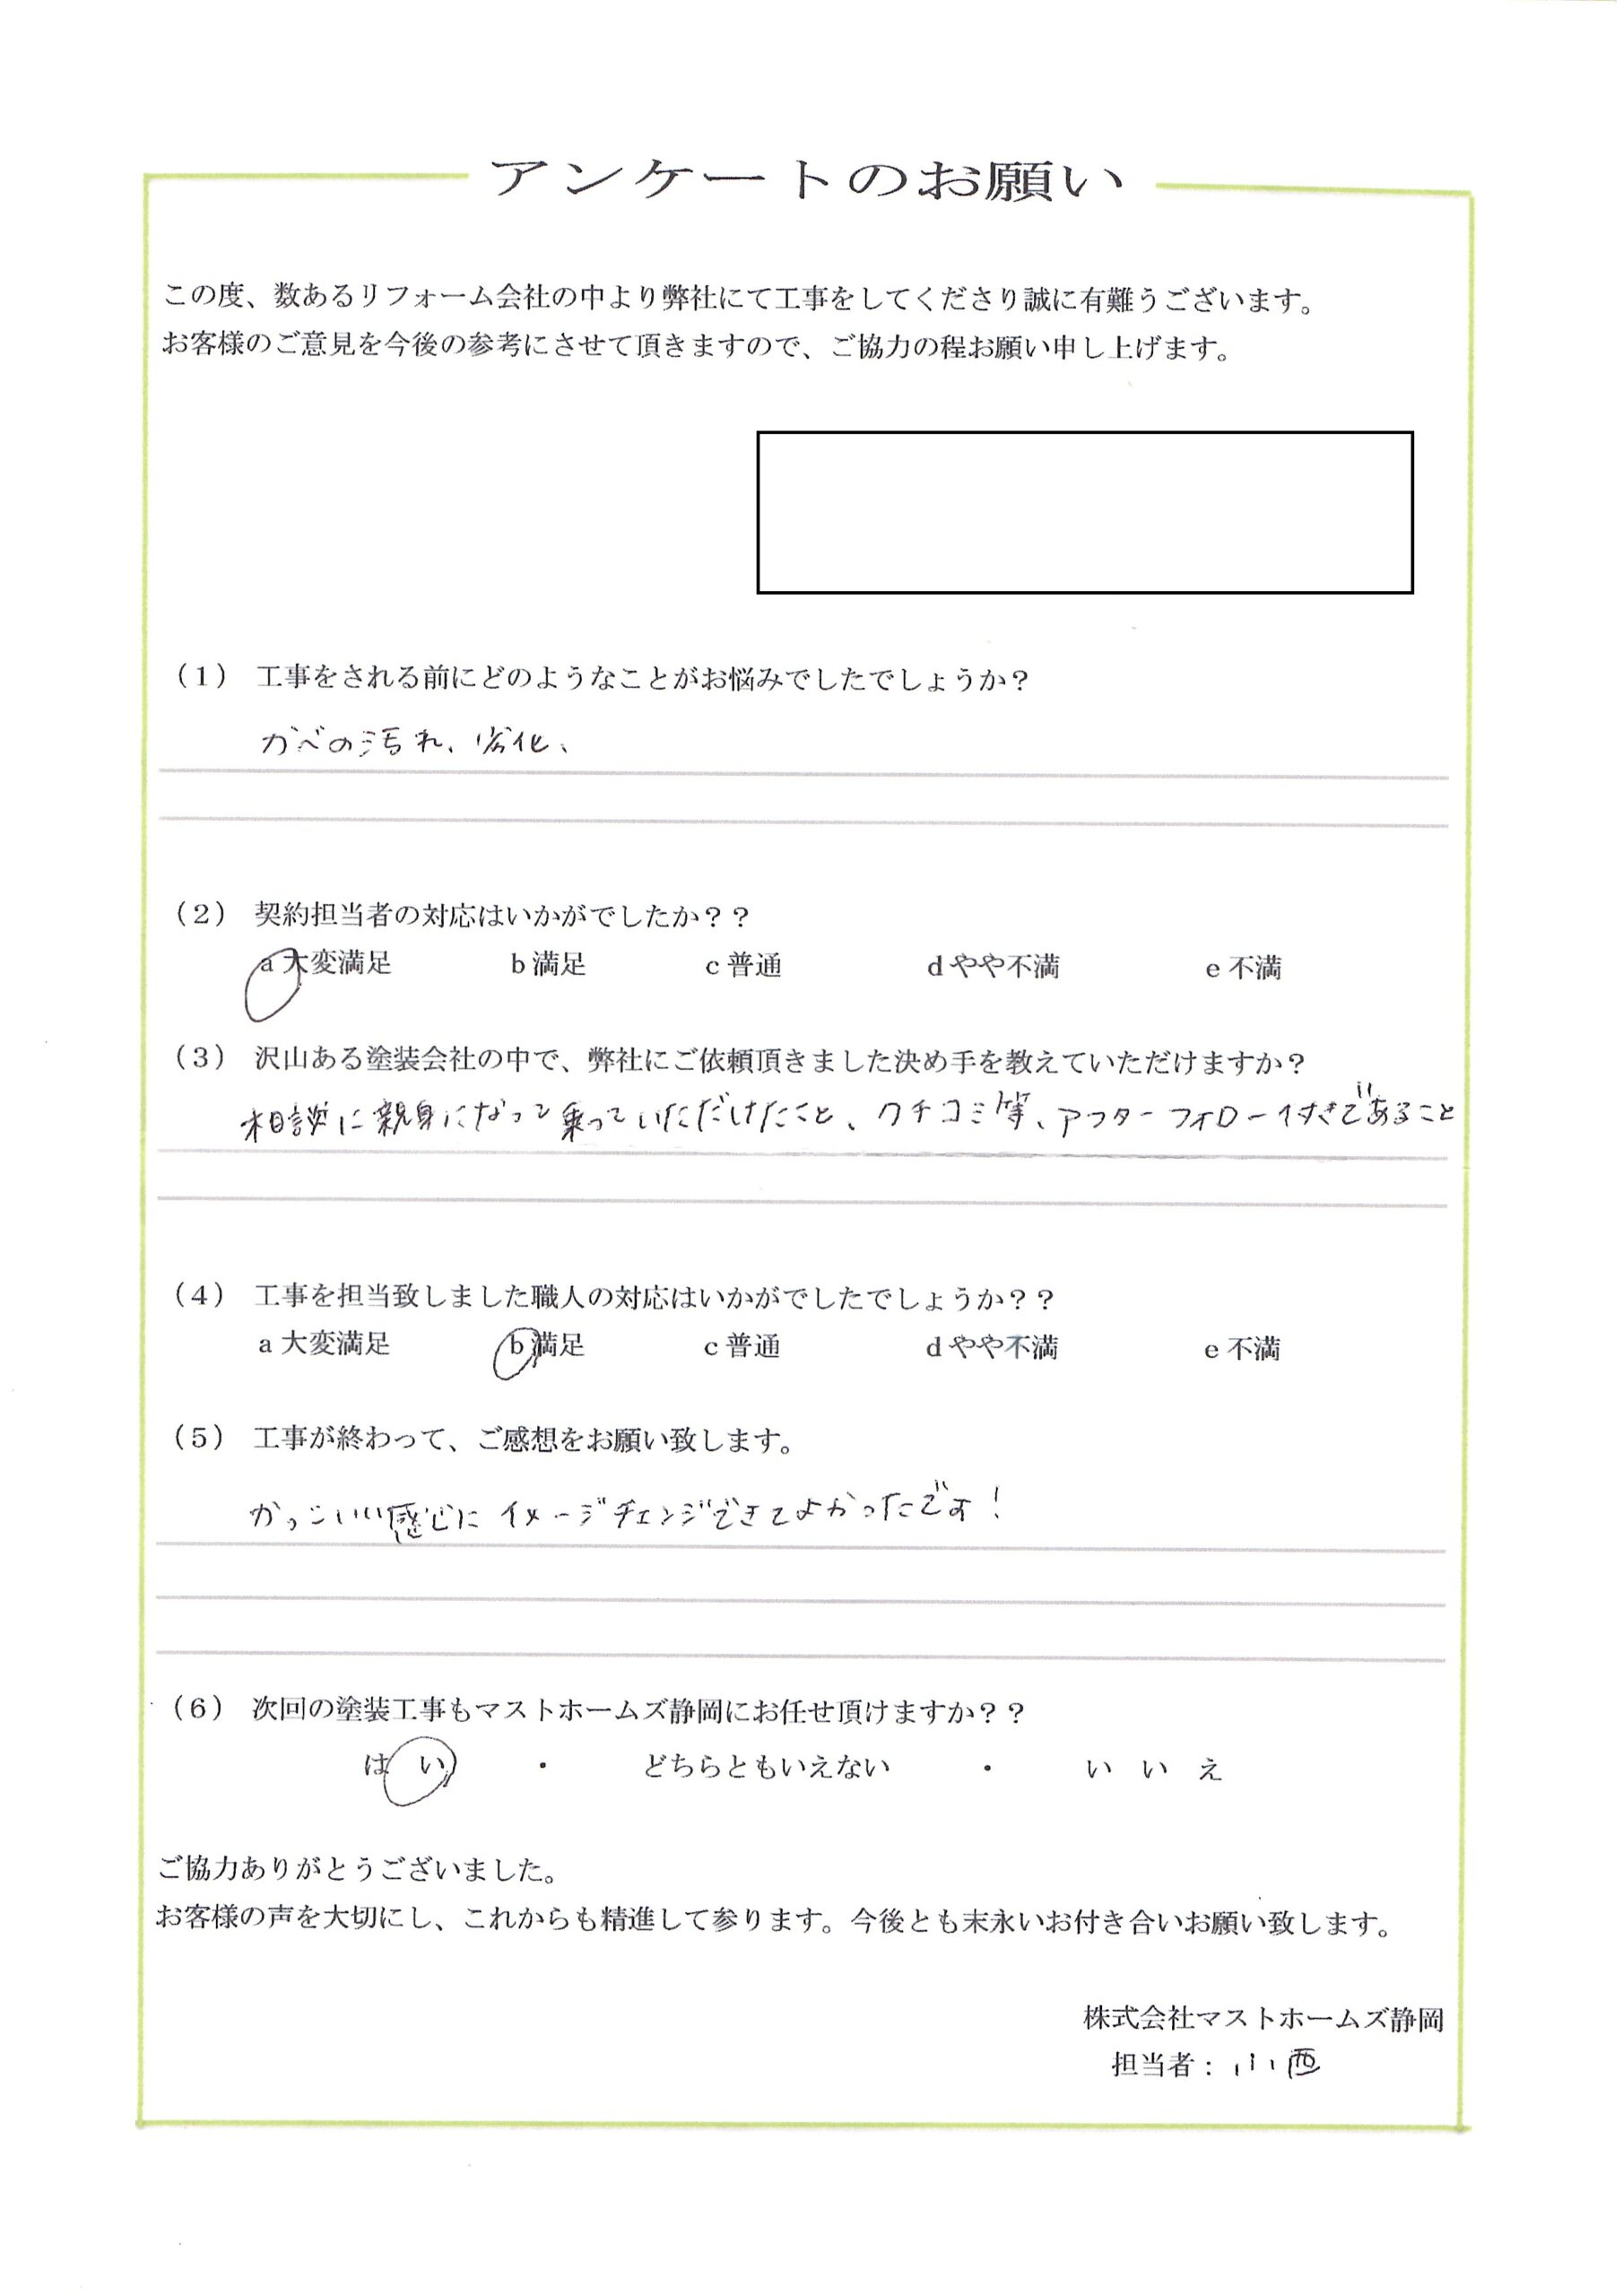 アンケートのお願い
この度、数あるリフォーム会社の中より弊社にて工事をしてくださり誠に有難うございます。
お客様のご意見を今後の参考にさせて頂きますので、ご協力の程お願い申し上げます。
（1） 工事をされる前にどのようなことがお悩みでしたでしょうか？
かべの汚れ、劣化、
（2） 契約担当者の対応はいかがでしたか？？
a 大変満足 b 満足 c 普通 d やや不満 e 不満
（3） 沢山ある塗装会社の中で、弊社にご依頼頂きました決め手を教えていただけますか？
相談に親身になって乗っていただけたこと、クチコミ等、アフターフォロー付きであること
（4） 工事を担当致しました職人の対応はいかがでしたでしょうか？？
a 大変満足 b 満足 c 普通 d やや不満 e 不満
（5） 工事が終わって、ご感想をお願い致します。
かっこいい感じにイメージチェンジできてよかったです！
（6） 次回の塗装工事もマストホームズ静岡にお任せ頂けますか？？
はい ・ どちらともいえない ・ いいえ
ご協力ありがとうございました。
お客様の声を大切にし、これからも精進して参ります。今後とも末永いお付き合いお願い致します。
株式会社マストホームズ静岡
担当者：小西